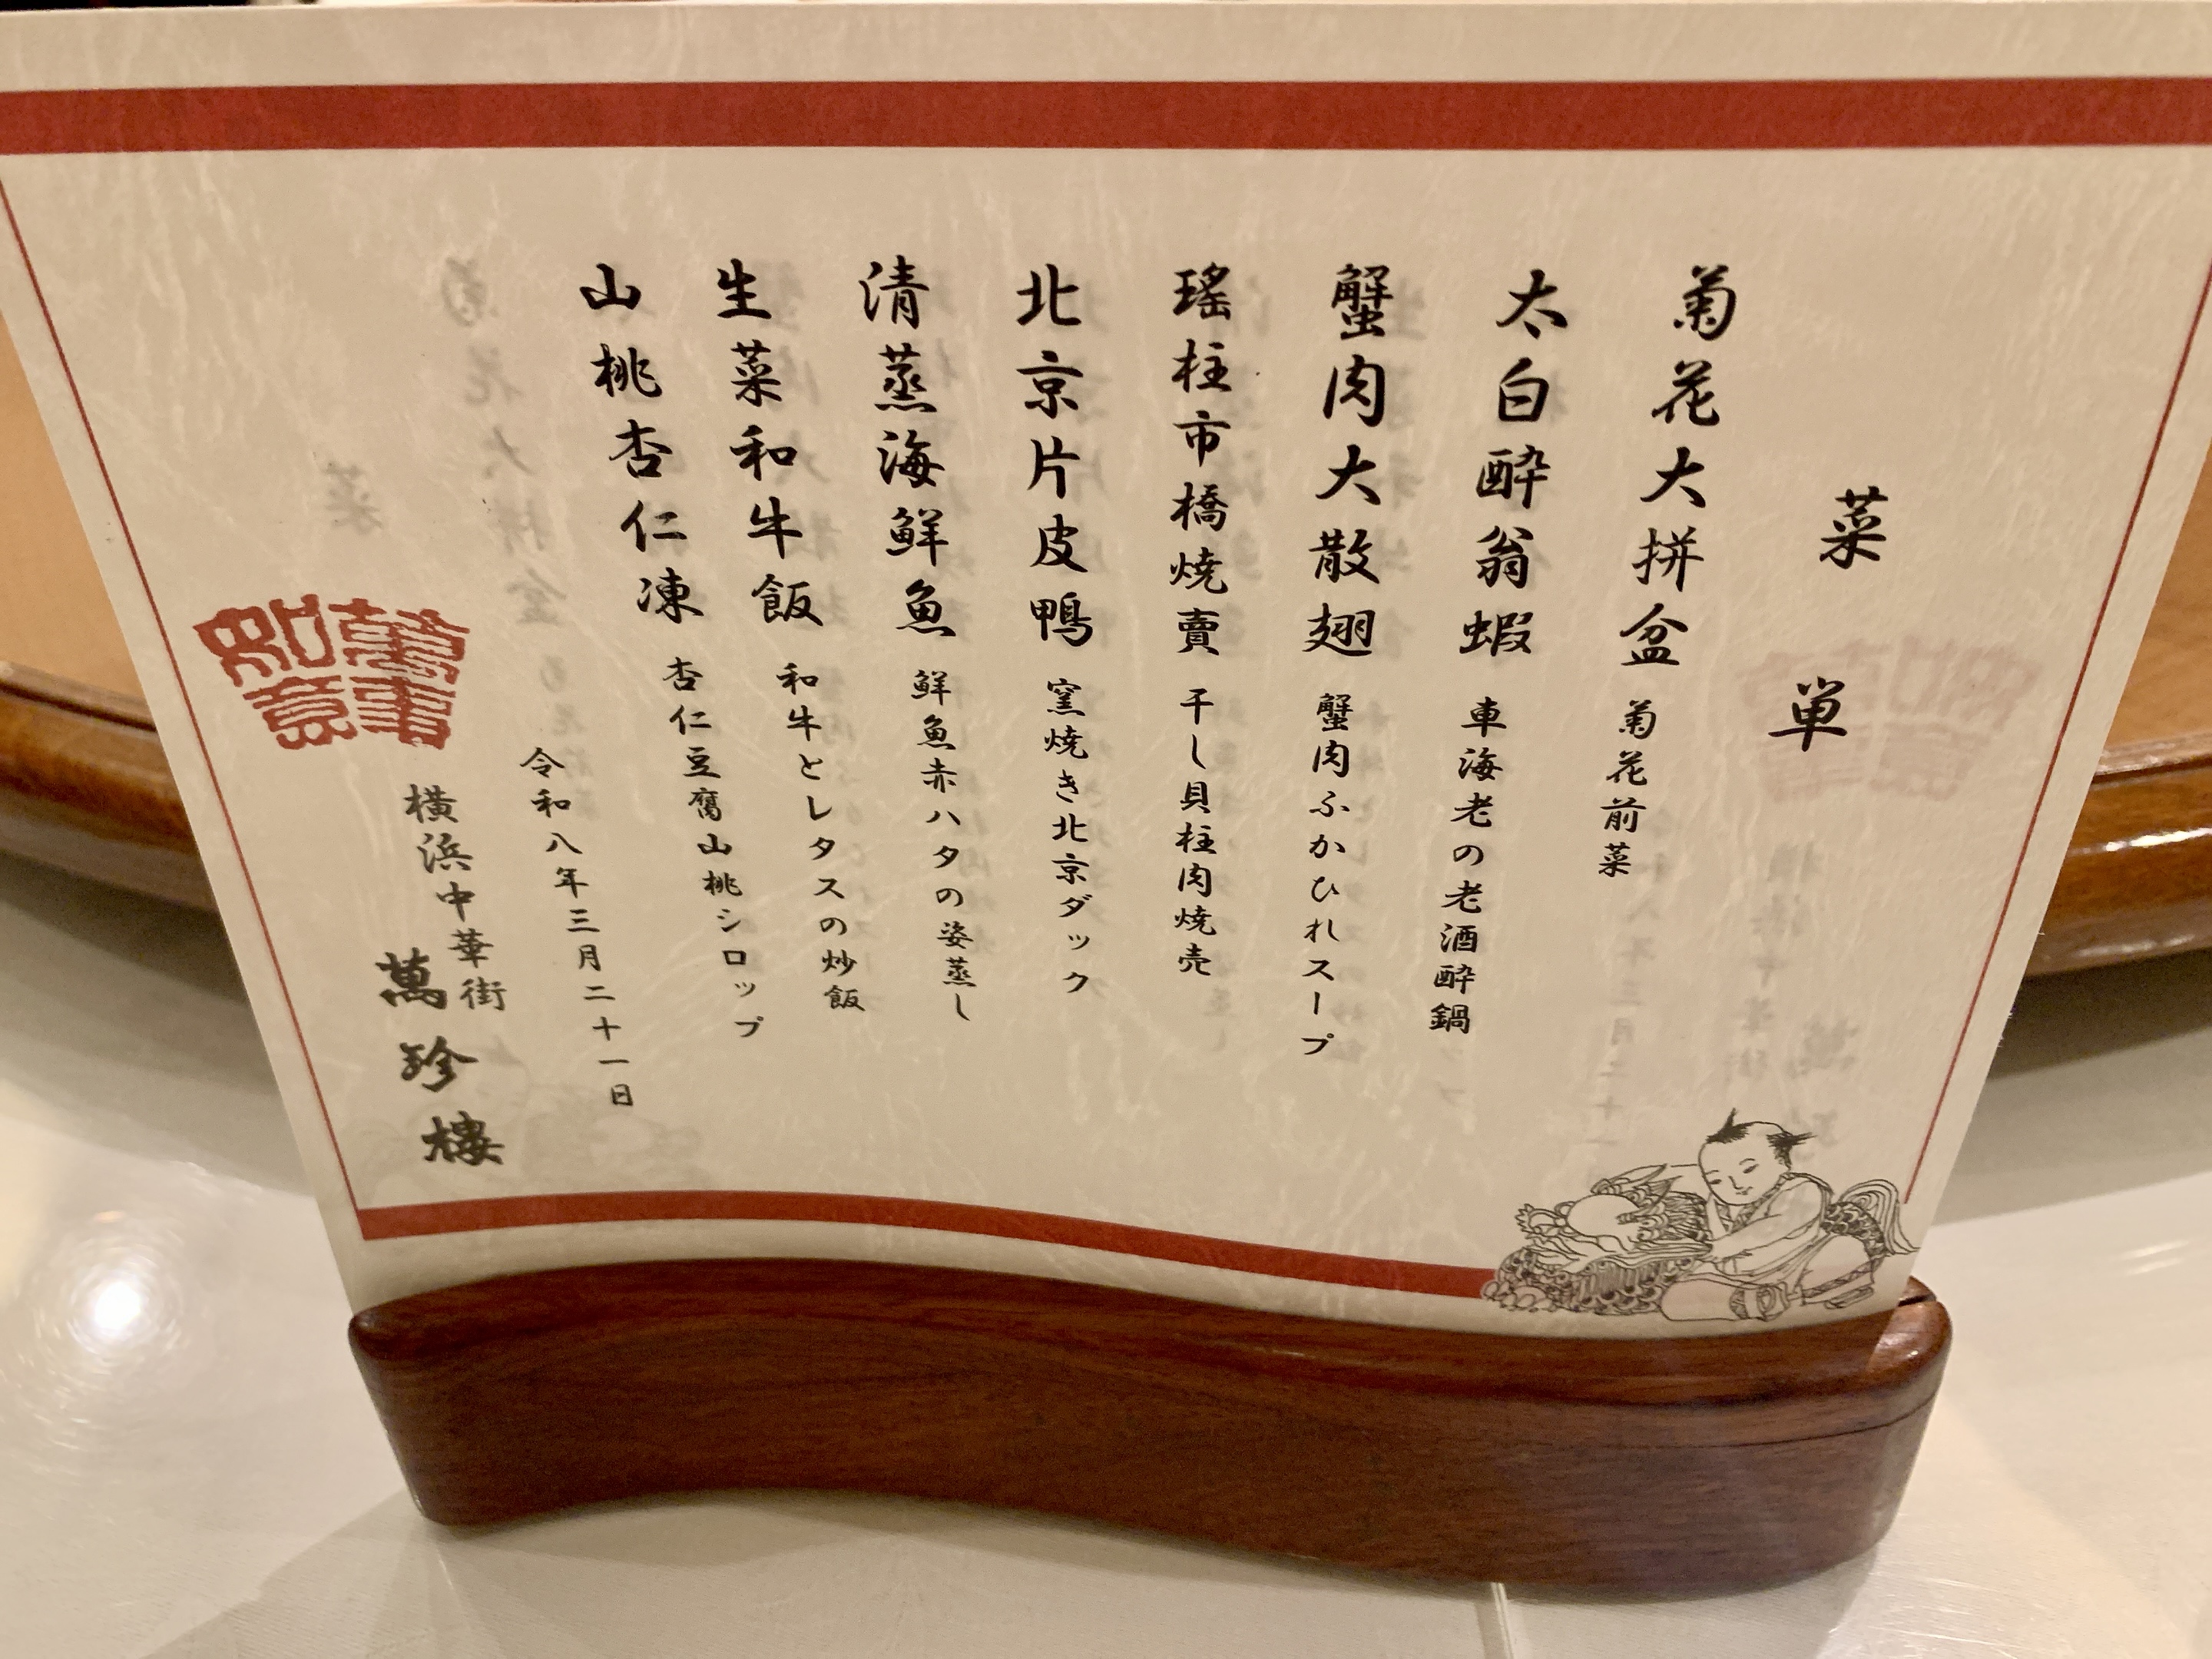 菜単
菊花大拼盆 菊花前菜
太白酔翁蝦 車海老の老酒酔鍋
蟹肉大散翅 蟹肉ふかひれスープ
瑤柱市橋焼賣 干し貝柱肉焼売
北京片皮鴨 窯焼き北京ダック
清蒸海鮮魚 鮮魚赤ハタの姿蒸し
生菜和牛飯 和牛とレタスの炒飯
山桃杏仁凍 杏仁豆腐山桃シロップ
令和八年三月二十一日
横浜中華街
萬珍樓
萬事如意